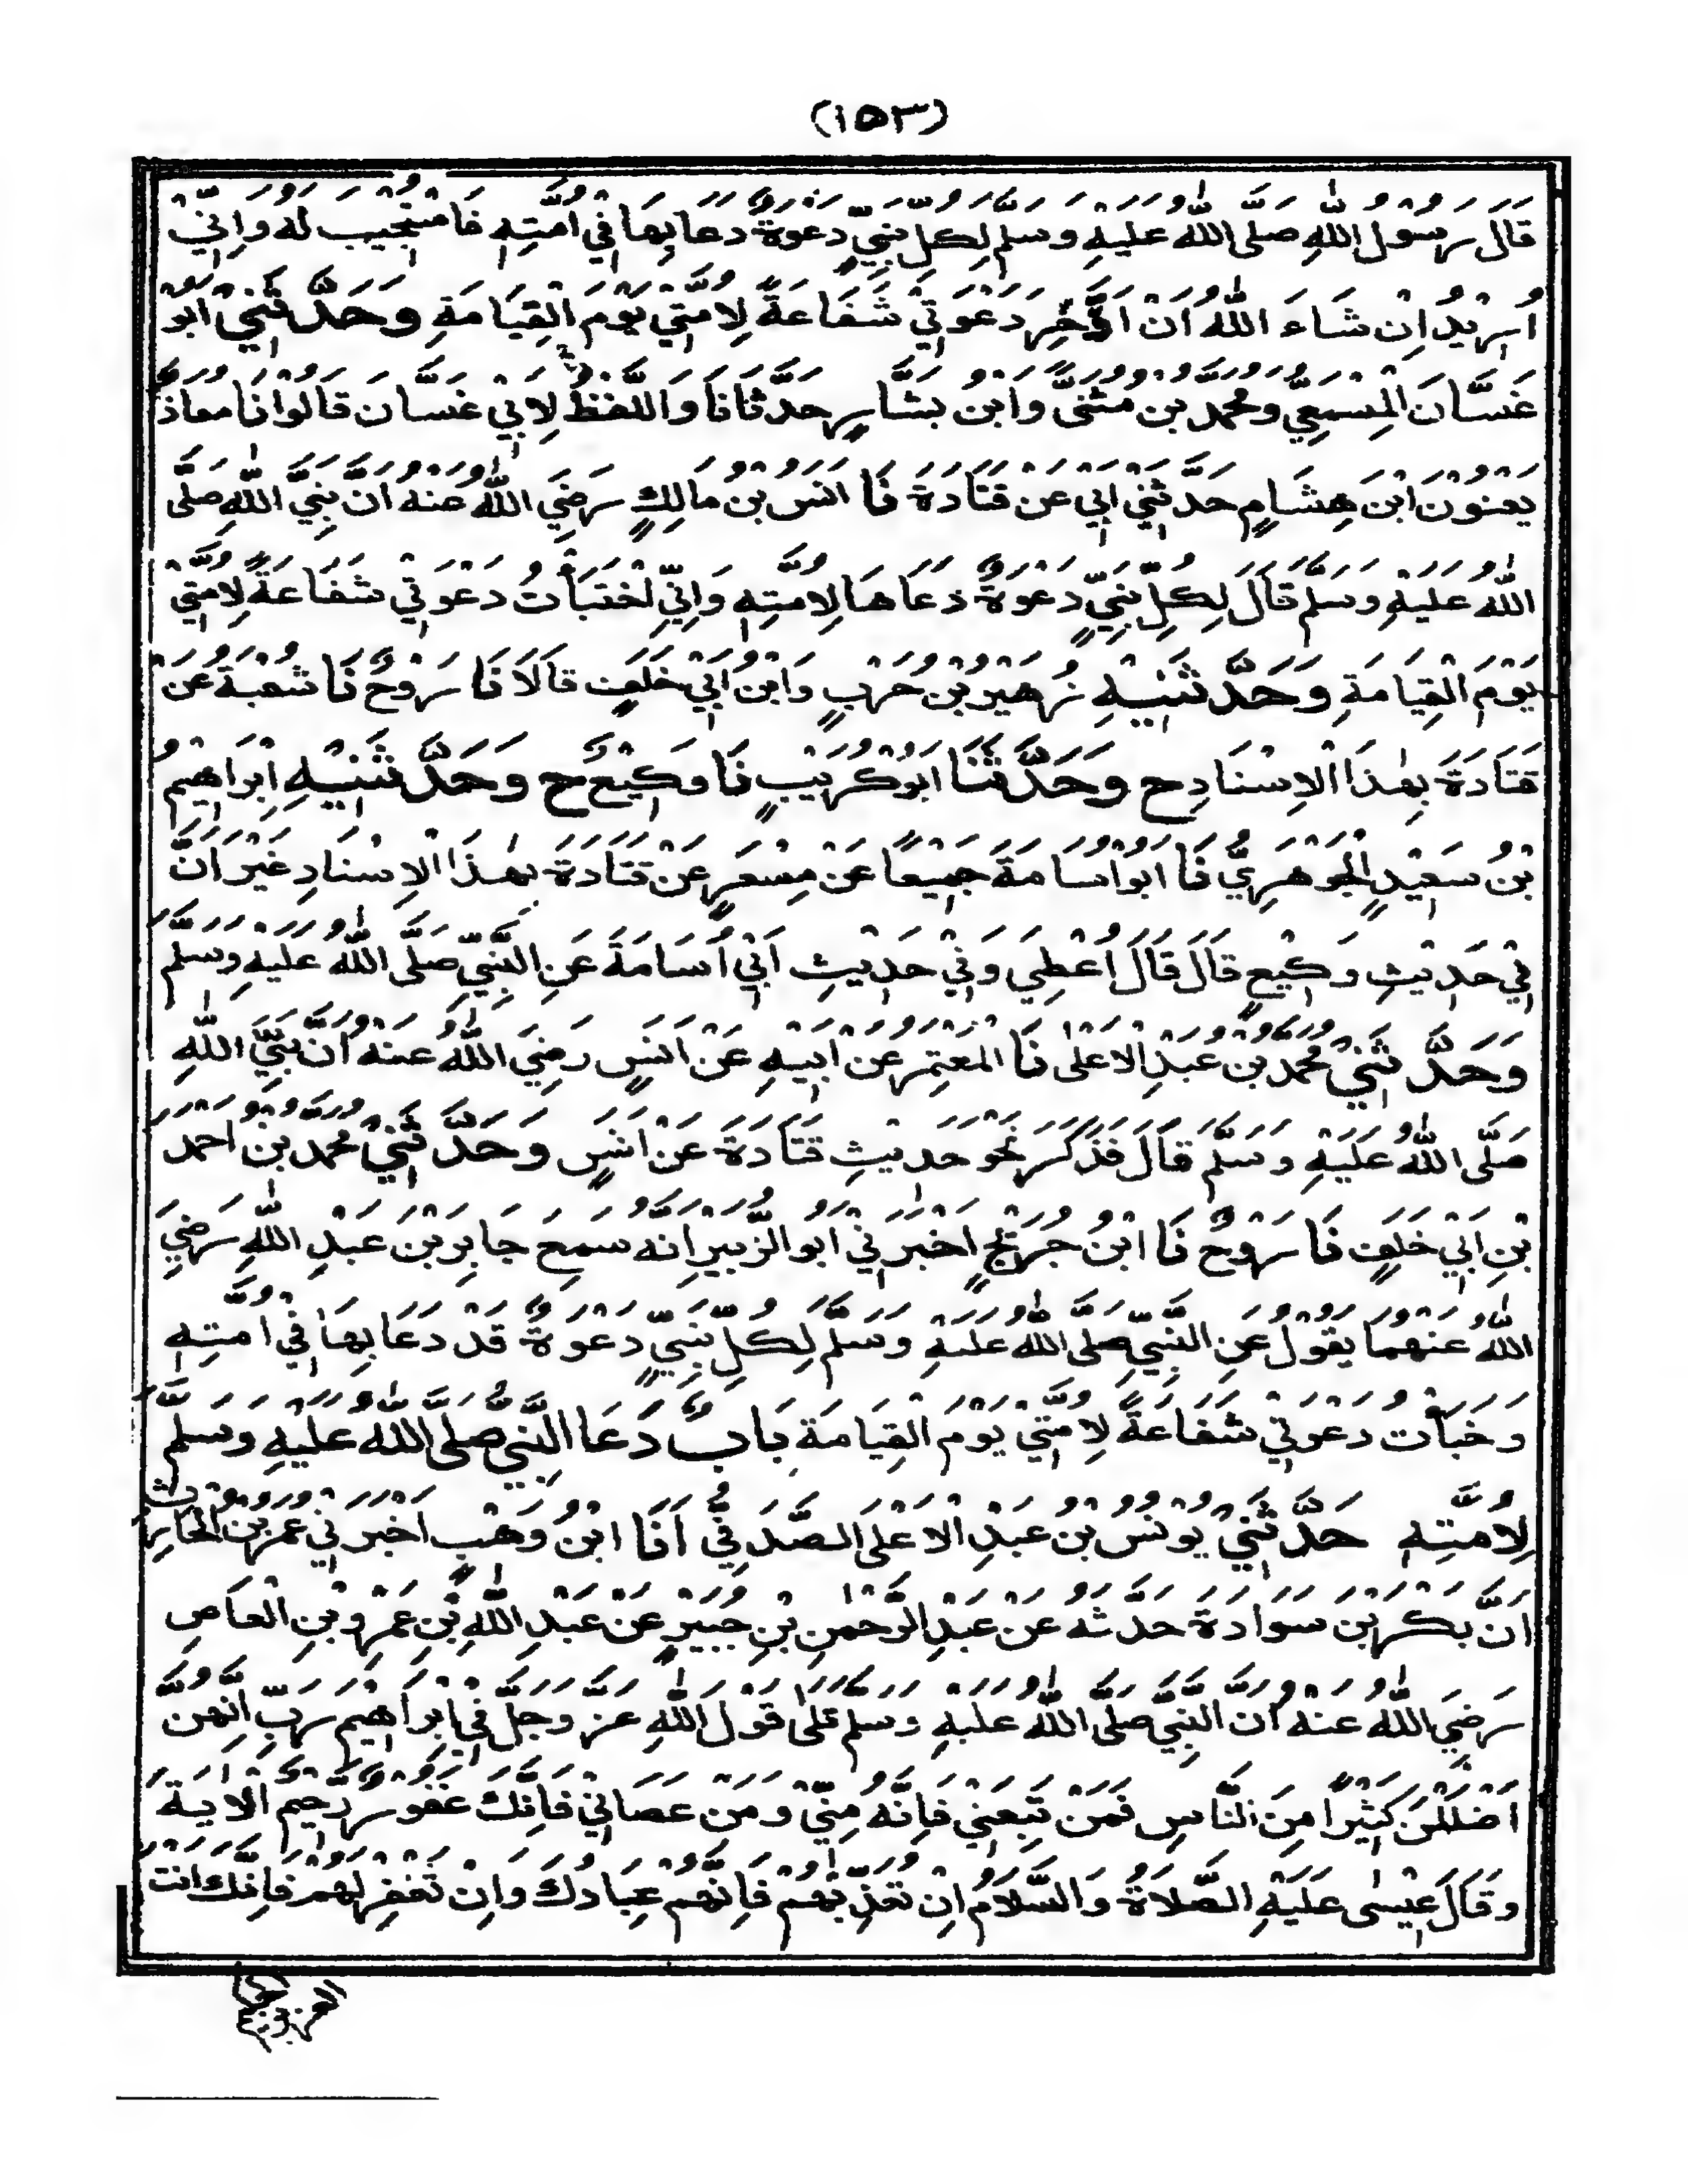 (١٥٣)
قَالَ رَسُوْلُ اللهِ صَلَّى اللهُ عَلَيْهِ وَسَلَّمَ لِكُلِّ نَبِيٍّ دَعْوَةٌ دَعَا بِهَا فِيْ اُمَّتِهِ فَاسْتُجِيْبَ لَهُ وَاِنِّيْ
اُرِيْدُ اِنْ شَاءَ اللهُ اَنْ اُؤَخِّرَ دَعْوَتِيْ شَفَاعَةً لِاُمَّتِيْ يَوْمَ الْقِيَامَةِ وَحَدَّثَنِيْ اَبُوْ
غَسَّانَ الْمِسْمَعِيُّ وَمُحَمَّدُ بْنُ مُثَنَّى وَابْنُ بَشَّارٍ حَدَّثَانَا وَاللَّفْظُ لِاَبِيْ غَسَّانَ قَالُوْا نَا مُعَاذٌ
يَعْنُوْنَ ابْنَ هِشَامٍ حَدَّثَنِيْ اَبِيْ عَنْ قَتَادَةَ نَا اَنَسُ بْنُ مَالِكٍ رَضِيَ اللهُ عَنْهُ اَنَّ نَبِيَّ اللهِ صَلَّى
اللهُ عَلَيْهِ وَسَلَّمَ قَالَ لِكُلِّ نَبِيٍّ دَعْوَةٌ دَعَاهَا لِاُمَّتِهِ وَاِنِّي اخْتَبَأْتُ دَعْوَتِيْ شَفَاعَةً لِاُمَّتِيْ
يَوْمَ الْقِيَامَةِ وَحَدَّثَنِيْهِ زُهَيْرُ بْنُ حَرْبٍ وَابْنُ اَبِيْ خَلَفٍ قَالَا نَا رَوْحٌ نَا شُعْبَةُ عَنْ
قَتَادَةَ بِهٰذَا الْاِسْنَادِ ح وَحَدَّثَنَا اَبُوْ كُرَيْبٍ نَا وَكِيْعٌ ح وَحَدَّثَنِيْهِ اِبْرَاهِيْمُ
بْنُ سَعِيْدٍ الْجَوْهَرِيُّ نَا اَبُوْ اُسَامَةَ جَمِيْعًا عَنْ مِسْعَرٍ عَنْ قَتَادَةَ بِهٰذَا الْاِسْنَادِ غَيْرَ اَنَّ
فِيْ حَدِيْثِ وَكِيْعٍ قَالَ قَالَ اُعْطِيَ وَفِيْ حَدِيْثِ اَبِيْ اُسَامَةَ عَنِ النَّبِيِّ صَلَّى اللهُ عَلَيْهِ وَسَلَّمَ
وَحَدَّثَنِيْ مُحَمَّدُ بْنُ عَبْدِ الْاَعْلٰى نَا الْمُعْتَمِرُ عَنْ اَبِيْهِ عَنْ اَنَسٍ رَضِيَ اللهُ عَنْهُ اَنَّ نَبِيَّ اللهِ
صَلَّى اللهُ عَلَيْهِ وَسَلَّمَ قَالَ فَذَكَرَ نَحْوَ حَدِيْثِ قَتَادَةَ عَنْ اَنَسٍ وَحَدَّثَنِيْ مُحَمَّدُ بْنُ اَحْمَدَ
بْنِ اَبِيْ خَلَفٍ نَا رَوْحٌ نَا ابْنُ جُرَيْجٍ اَخْبَرَنِيْ اَبُو الزُّبَيْرِ اَنَّهُ سَمِعَ جَابِرَ بْنَ عَبْدِ اللهِ رَضِيَ
اللهُ عَنْهُمَا يَقُوْلُ عَنِ النَّبِيِّ صَلَّى اللهُ عَلَيْهِ وَسَلَّمَ لِكُلِّ نَبِيٍّ دَعْوَةٌ قَدْ دَعَا بِهَا فِيْ اُمَّتِهِ
وَخَبَأْتُ دَعْوَتِيْ شَفَاعَةً لِاُمَّتِيْ يَوْمَ الْقِيَامَةِ بَابٌ دَعَا النَّبِيُّ صَلَّى اللهُ عَلَيْهِ وَسَلَّمَ
لِاُمَّتِهِ حَدَّثَنِيْ يُوْنُسُ بْنُ عَبْدِ الْاَعْلَى الصَّدَفِيُّ اَنَا ابْنُ وَهْبٍ اَخْبَرَنِيْ عَمْرُو بْنُ الْحَارِثِ
اَنَّ بَكْرَ بْنَ سَوَادَةَ حَدَّثَهُ عَنْ عَبْدِ الرَّحْمٰنِ بْنِ جُبَيْرٍ عَنْ عَبْدِ اللهِ بْنِ عَمْرِو بْنِ الْعَاصِ
رَضِيَ اللهُ عَنْهُ اَنَّ النَّبِيَّ صَلَّى اللهُ عَلَيْهِ وَسَلَّمَ تَلٰى قَوْلَ اللهِ عَزَّ وَجَلَّ فِيْ اِبْرَاهِيْمَ رَبِّ اِنَّهُنَّ
اَضْلَلْنَ كَثِيْرًا مِنَ النَّاسِ فَمَنْ تَبِعَنِيْ فَاِنَّهُ مِنِّيْ وَمَنْ عَصَانِيْ فَاِنَّكَ غَفُوْرٌ رَحِيْمٌ الْاٰيَةَ
وَقَالَ عِيْسٰى عَلَيْهِ الصَّلَاةُ وَالسَّلَامُ اِنْ تُعَذِّبْهُمْ فَاِنَّهُمْ عِبَادُكَ وَاِنْ تَغْفِرْ لَهُمْ فَاِنَّكَ اَنْتَ